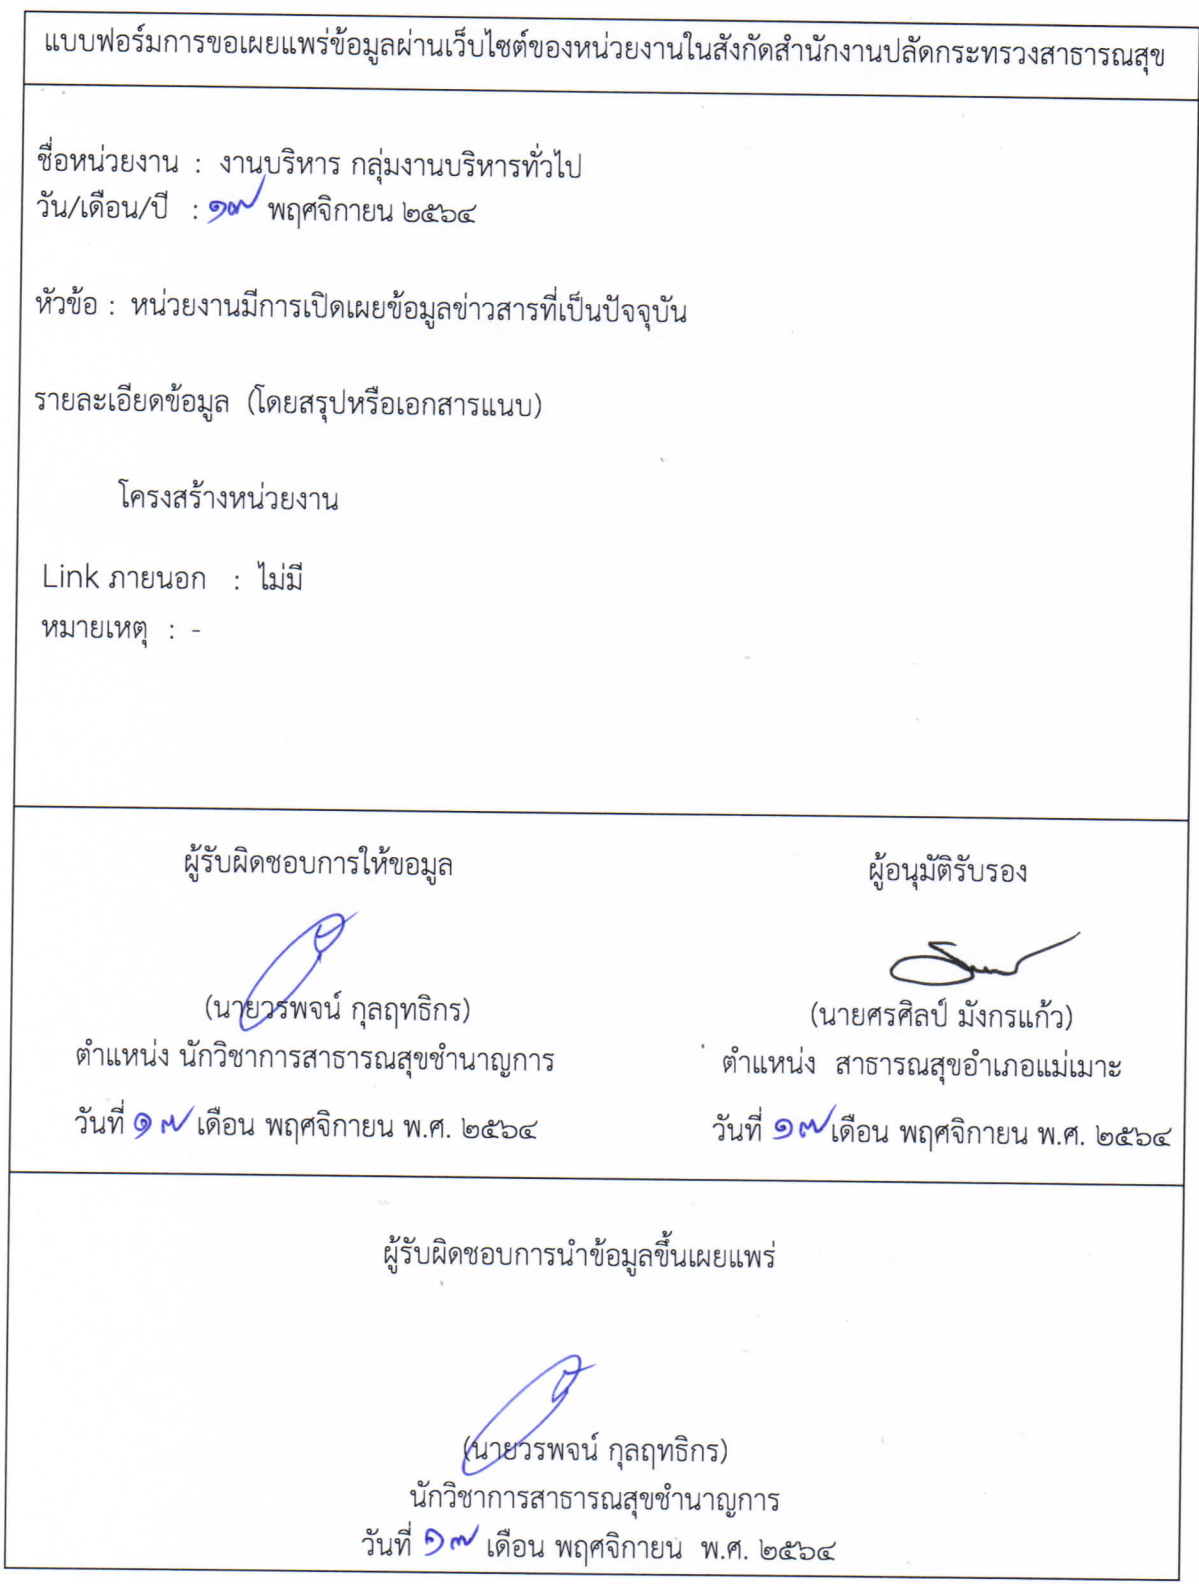 แบบฟอร์มการขอเผยแพร่ข้อมูลผ่านเว็บไซต์ของหน่วยงานในสังกัดสำนักงานปลัดกระทรวงสาธารณสุข
ชื่อหน่วยงาน : งานบริหาร กลุ่มงานบริหารทั่วไป
วัน/เดือน/ปี : ๑๗ พฤศจิกายน ๒๕๖๔
หัวข้อ : หน่วยงานมีการเปิดเผยข้อมูลข่าวสารที่เป็นปัจจุบัน
รายละเอียดข้อมูล (โดยสรุปหรือเอกสารแนบ)
โครงสร้างหน่วยงาน
Link ภายนอก : ไม่มี
หมายเหตุ : -
ผู้รับผิดชอบการให้ขอมูล
(นายวรพจน์ กุลฤทธิกร)
ตำแหน่ง นักวิชาการสาธารณสุขชำนาญการ
วันที่ ๑๗ เดือน พฤศจิกายน พ.ศ. ๒๕๖๔
ผู้อนุมัติรับรอง
(นายศรศิลป์ มังกรแก้ว)
ตำแหน่ง สาธารณสุขอำเภอแม่เมาะ
วันที่ ๑๗ เดือน พฤศจิกายน พ.ศ. ๒๕๖๔
ผู้รับผิดชอบการนำข้อมูลขึ้นเผยแพร่
(นายวรพจน์ กุลฤทธิกร)
นักวิชาการสาธารณสุขชำนาญการ
วันที่ ๑๗ เดือน พฤศจิกายน พ.ศ. ๒๕๖๔